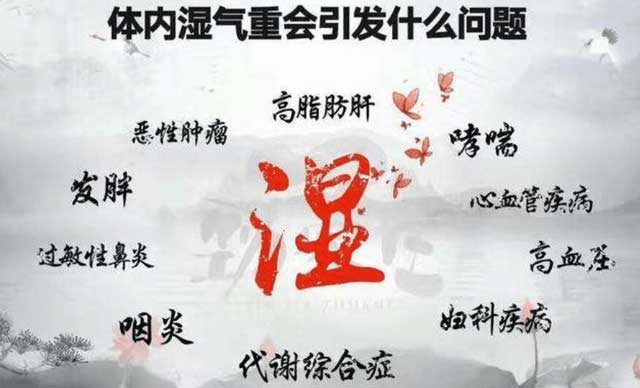 体内湿气重会引发什么问题
高脂肪肝
恶性肿瘤
哮喘
发胖
湿
心血管疾病
过敏性鼻炎
高血压
咽炎
妇科疾病
代谢综合症